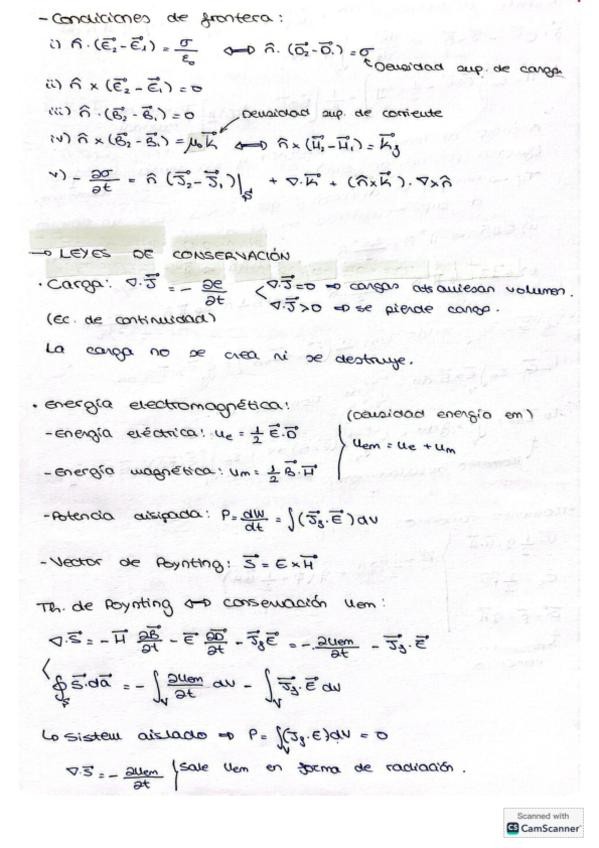 - Condiciones de frontera:
i) n̂·(E⃗₂-E⃗₁) = σ/ε₀ ⟺ n̂·(D⃗₂-D⃗₁) = σ
Densidad sup. de carga
ii) n̂ × (E⃗₂-E⃗₁) = 0
iii) n̂·(B⃗₂-B⃗₁) = 0 Densidad sup. de corriente
iv) n̂ × (B⃗₂-B⃗₁) = μ₀K⃗ ⟺ n̂ × (H⃗₂-H⃗₁) = K⃗g
v) - ∂σ/∂t = n̂ (J⃗₂-J⃗₁)|s + ∇·K⃗ + (n̂×K⃗)·∇×n̂
→ LEYES DE CONSERVACIÓN
· Carga: ∇·J⃗ = - ∂ρ/∂t ∇·J⃗=0 ⇒ cargas atraviesan volumen.
∇·J⃗>0 ⇒ se pierde carga.
(Ec. de continuidad)
La carga no se crea ni se destruye.
· energía electromagnética: (Densidad energía em)
- energía eléctrica: ue = 1/2 E⃗·D⃗
uem = ue + um
- energía magnética: um = 1/2 B⃗·H⃗
- Potencia disipada: P = dW/dt = ∫(J⃗g·E⃗) dv
- Vector de Poynting: S⃗ = E×H⃗
Th. de Poynting ⟺ conservación uem:
∇·S⃗ = - H⃗ ∂B⃗/∂t - E⃗ ∂D⃗/∂t - J⃗gE⃗ = - ∂uem/∂t - J⃗g·E⃗
∮s S⃗·da⃗ = - ∫v ∂uem/∂t dv - ∫v J⃗g·E⃗ dv
↳ Sistem aislado ⇒ P = ∫v(J⃗g·E) dv = 0
∇·S⃗ = - ∂uem/∂t Sale Uem en forma de radiación.
Scanned with
CS CamScanner